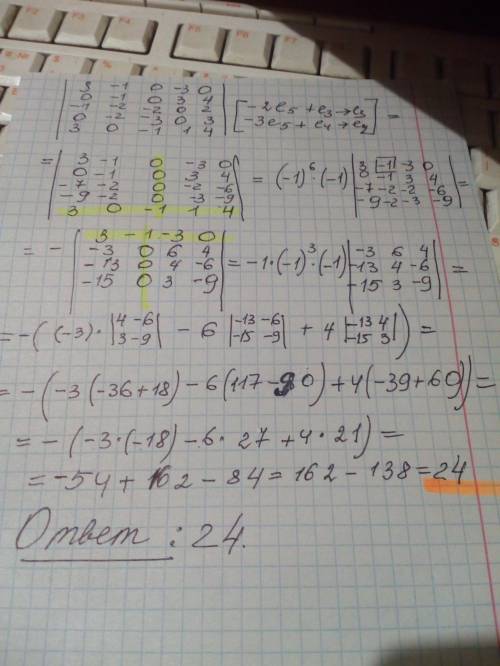 | 3 -1 0 -3 0 |
| 0 -1 0 3 4 |
| -1 -2 -2 0 2 | [ -2e₅ + e₃ → e₃
| 0 -2 -3 0 3 | -3e₅ + e₄ → e₂ ] =
| 3 0 -1 1 4 |
= | 3 -1 0 -3 0 |
| 0 -1 0 3 4 |
| -7 -2 0 -2 -6 |
| -9 -2 0 -3 -9 |
| 3 0 -1 1 4 | = (-1)⁶·(-1) | 3 -1 -3 0 |
| 0 -1 3 4 |
| -7 -2 -2 -6 |
| -9 -2 -3 -9 | =
= - | 3 -1 -3 0 |
| -3 0 6 4 |
| -13 0 4 -6 |
| -15 0 3 -9 | = -1·(-1)³·(-1) | -3 6 4 |
| -13 4 -6 |
| -15 3 -9 | =
= -( (-3)· | 4 -6 | - 6 | -13 -6 | + 4 | -13 4 | ) =
| 3 -9 | | -15 -9 | | -15 3 |
= -(-3(-36+18) - 6(117-90) + 4(-39+60)) =
= -(-3·(-18) - 6·27 + 4·21) =
= -54 + 162 - 84 = 162 - 138 = 24
Ответ: 24.